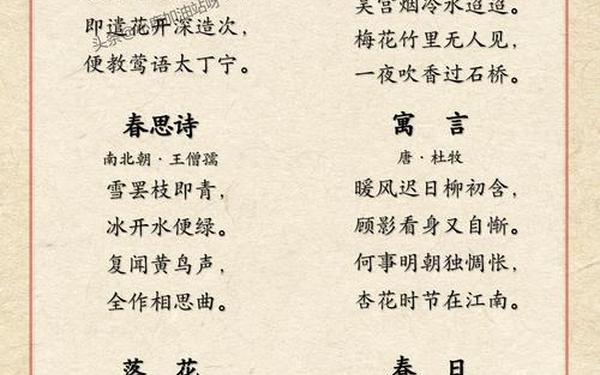 即遣花开深造次，
便教莺语太丁宁。
春思诗
南北朝·王僧孺
雪罢枝即青，
冰开水便绿。
复闻黄鸟声，
全作相思曲。
落 花
吴宫烟冷水迢迢。
梅花竹里无人见，
一夜吹香过石桥。
寓 言
唐·杜牧
暖风迟日柳初含，
顾影看身又自惭。
何事明朝独惆怅，
杏花时节在江南。
春 日